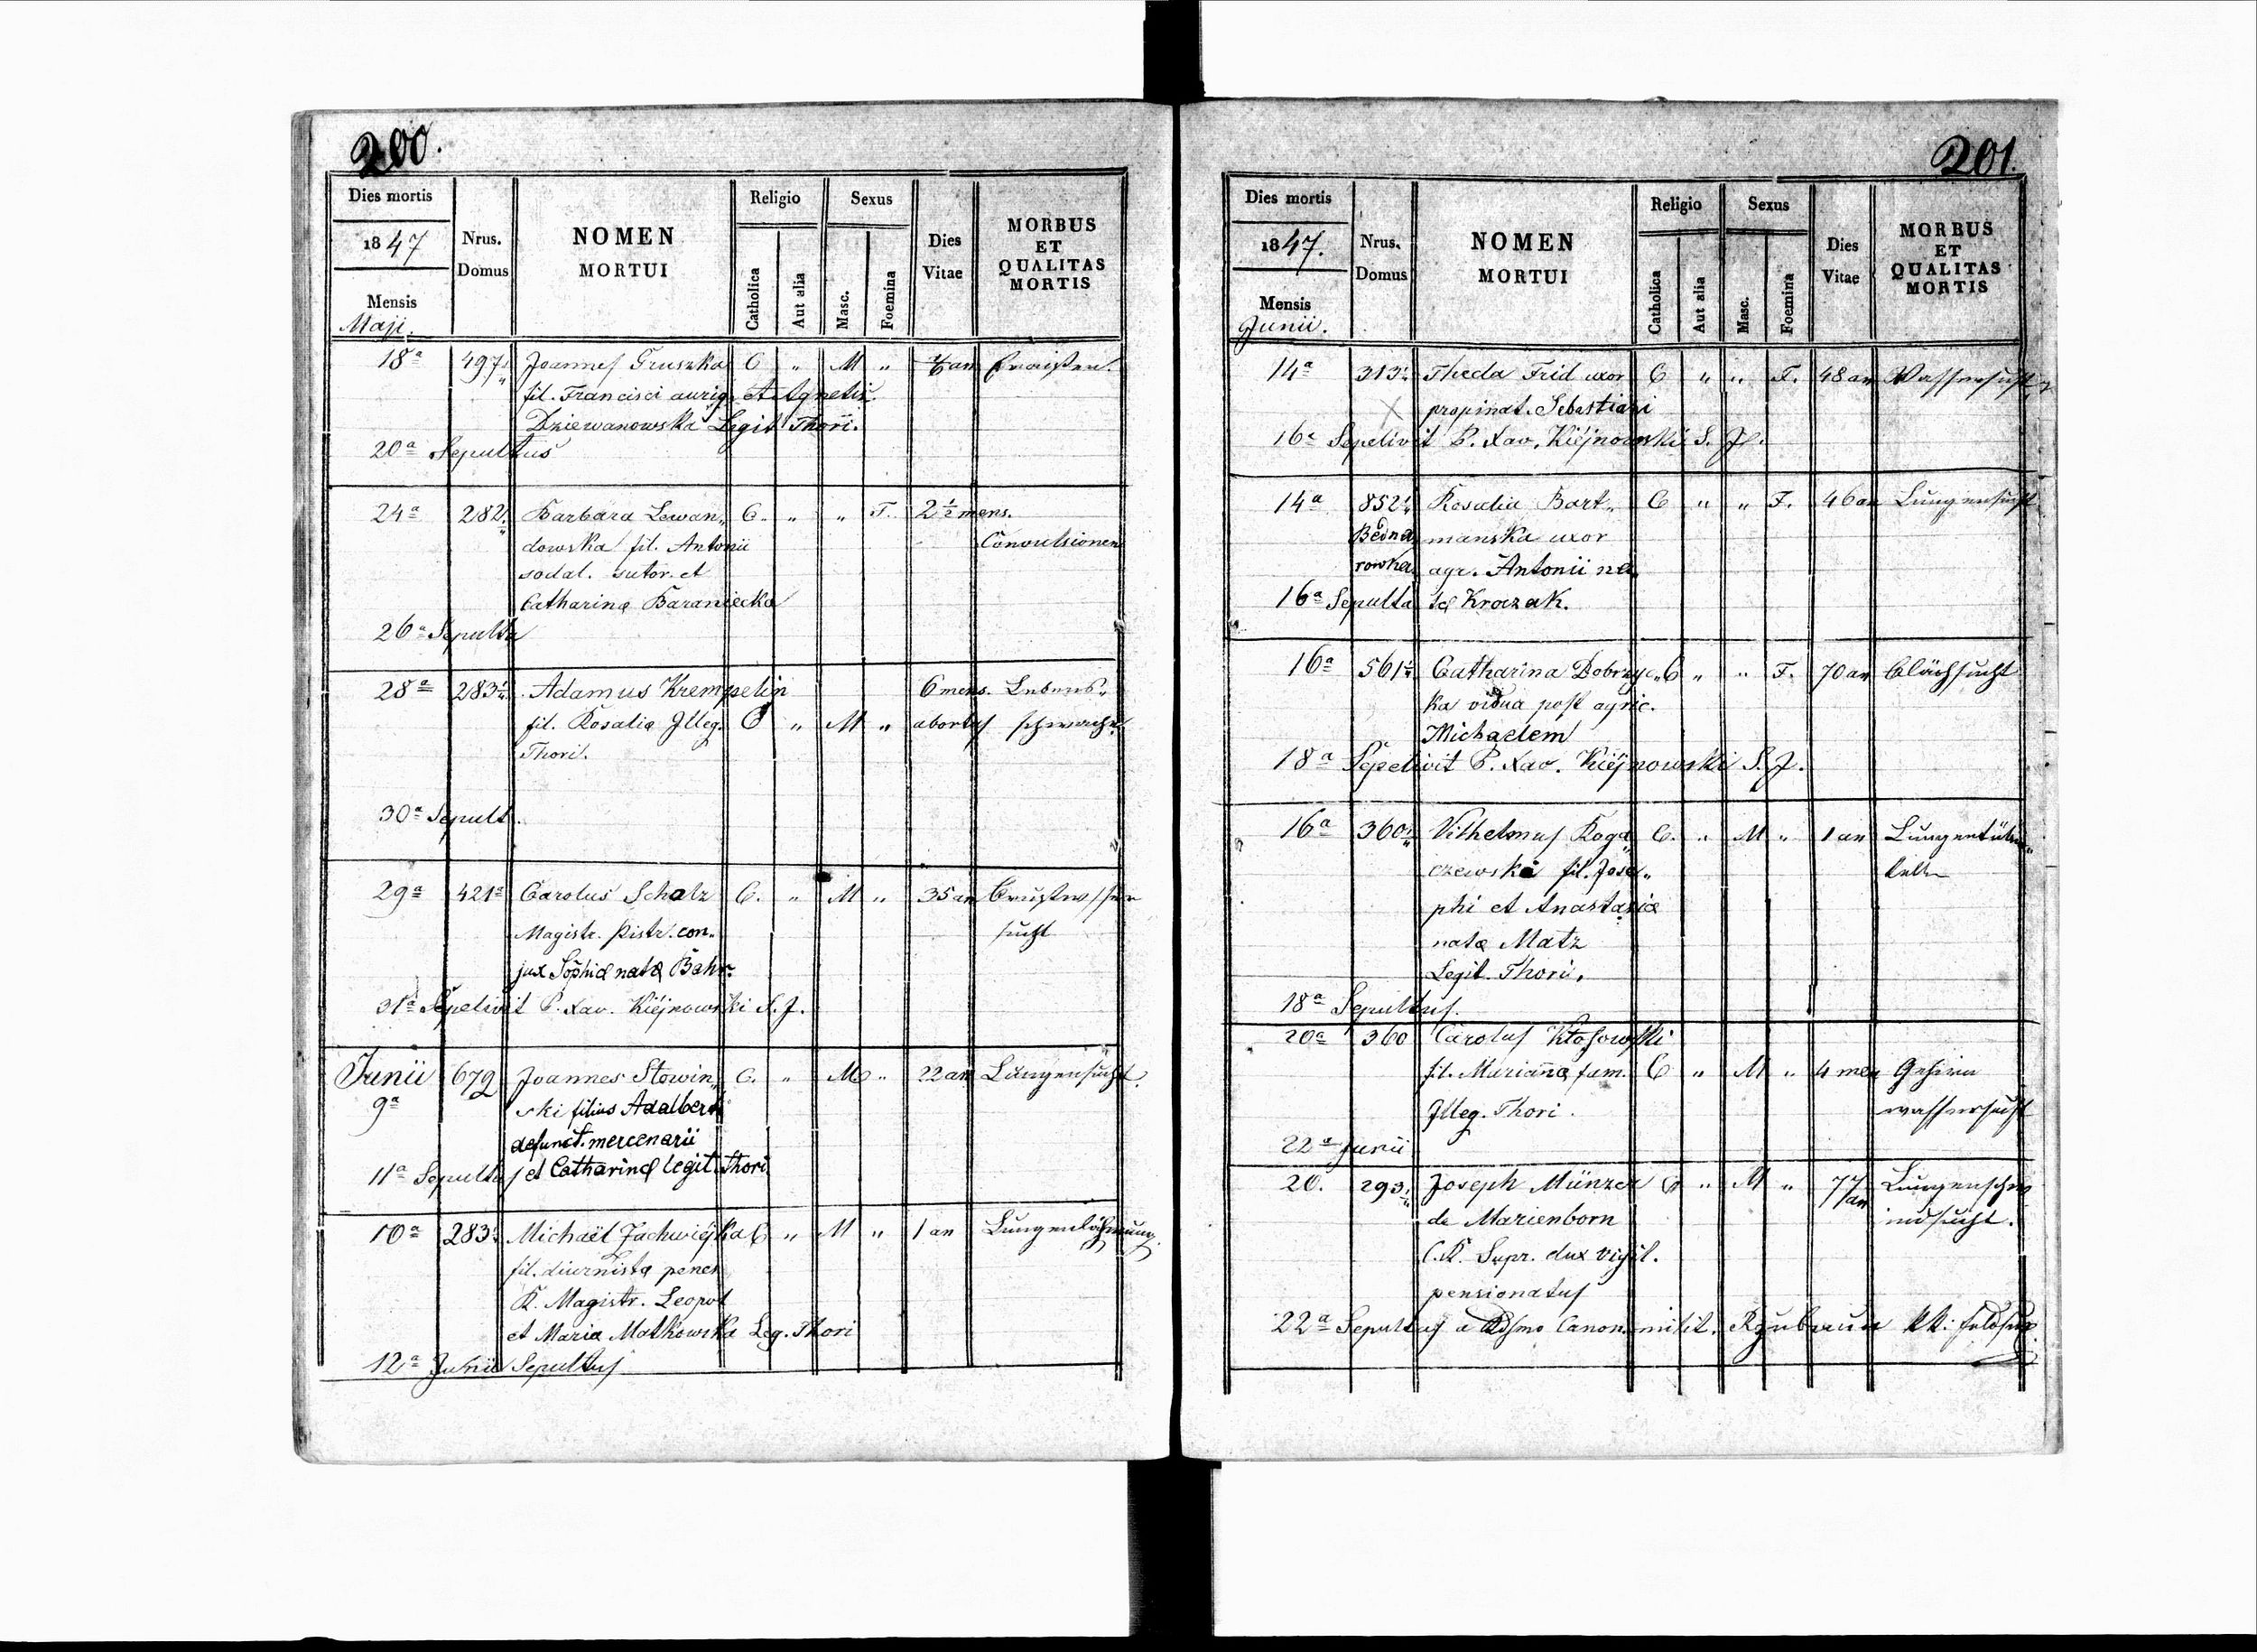 200.
Dies mortis
1847
Mensis
Maji.
Nrus.
Domus
NOMEN
MORTUI
Religio
Catholica
Aut alia
Sexus
Masc.
Foemina
Dies
Vitae
MORBUS
ET
QUALITAS
MORTIS
18a 497 Joannes Gruszka C " M " an
fil. Francisci aurig. et Agnetis
Dziewanowska Legit Thori.
20a Sepultus
24a 282 Barbara Lewan„ C. " " F. 2 1/2 mens.
dowska fil. Antonii Convulsionen
sodal. sutor. et
Catharina Baraniecka
26a Sepulta
28a 283 Adamus Krempelin 6 mens. Lebens„
fil. Rosaliæ Illeg. C " M " abortus schwache
Thori.
30a Sepult.
29a 421a Carolus Scholz C. " M " 35 an Brustwasser
Magistr. Pistr. con„ sucht
jux Sophiæ natæ Bahr.
31a Sepelivit P. Xav. Kiéjnowski S.J.
Junii 679 Joannes Stowin„ C. " M " 22 an Lungensucht.
9a ski filius Adalberti
defunct. mercenarii
11a Sepultus et Catharinæ legit. Thori
10a 283 Michaël Jachwiéjka C " M " 1 an Lungenlähmung.
fil. diurnista penes
K. Magistr. Leopol
et Maria Matkowska Leg. Thori
12a Junii Sepultus
201.
Dies mortis
1847.
Mensis
Junii.
Nrus.
Domus
NOMEN
MORTUI
Religio
Catholica
Aut alia
Sexus
Masc.
Foemina
Dies
Vitae
MORBUS
ET
QUALITAS
MORTIS
14a 313 Theda Frid uxor C " " F. 48 an Wassersucht
propinat. Sebastiani
16a Sepelivit P. Xav. Kiéjnowski S. J.
14a 852 Rosalia Bart„ C " " F. 46 an Lungensucht
Bedna manska uxor
rowka agr. Antonii na„
16a Sepulta tæ Kroczak.
16a 561 Catharina Dobrzyc„ C " " F. 70 an
ka vidua post agric.
Michaelem
18a Sepelivit P. Xav. Kiéjnowski S.J.
16a 360 Vilhelmus Roga„ C. " M " 1 an
czewski fil. Jose„
phi et Anastasiæ
natæ Matz
Legit. Thori.
18a Sepultus.
20a 360 Carolus Kłosowski
fil. Mariannæ fam. C " M " 4 men Gehirn
Illeg. Thori. wassersucht
22a Junii
20. 293 Joseph Münzer C " M " 77 an Lungenschw
de Marienborn indsucht.
C.K. Supr. dux vigil.
pensionatus
22a Sepultus a Canon. milit.